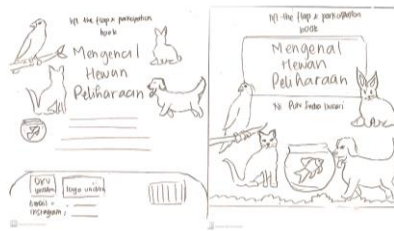 lift the flap & participation
book
Mengenal
Hewan
Peliharaan
logo unidha
Email =
instagram :
lift-the flap & participation
book
Mengenal
Hewan
Peliharaan
Ni Putu